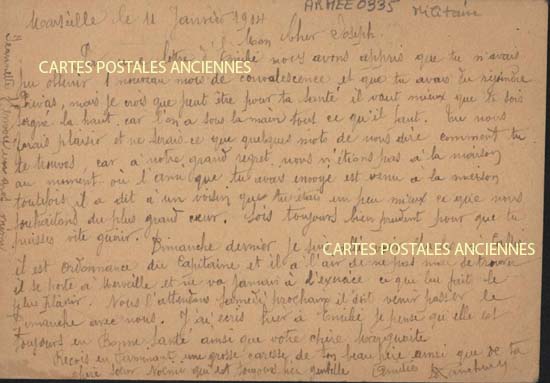 ARMEE0335
Militaire
Marseille le 11 Janvier 1914
Mon Cher Joseph
lettre à Emilie nous avons appris que tu n'avais
CARTES POSTALES ANCIENNES
pu obtenir 1 nouveau mois de convalescence et que tu avais du rejoindre
Privas, mais je crois que peut être pour ta santé il vaut mieux que tu sois
soigné là haut car l'on a sous la main tous ce qu'il faut. Tu nous
ferais plaisir et ne serais ce que quelques mots de nous dire comment tu
te trouves, car à notre grand regret, nous n'étions pas à la maison
au moment où l'ami que tu avais envoyé est venu à la maison
toutefois il a dit à un voisin que tu étais un peu mieux ce que nous
souhaitons du plus grand cœur. Sois toujours bien prudent pour que tu
puisses vite guérir. Dimanche dernier je suis
CARTES POSTALES ANCIENNES
il est ordonnance du Capitaine et il a l'air de ne pas mal se trouver
il se porte à merveille et ne va jamais à l'exercice ce qui lui fait le
plus plaisir. Nous l'attendons Samedi prochain il doit venir passer le
Dimanche avec nous. J'ai écris hier à Emilie je pense qu'elle est
toujours en Bonne Santé ainsi que votre chère Marguerite
Reçois en terminant une grosse caresse de ton beau père ainsi que de ta
chère sœur Noémie qui est toujours bien gentille
Jeannette